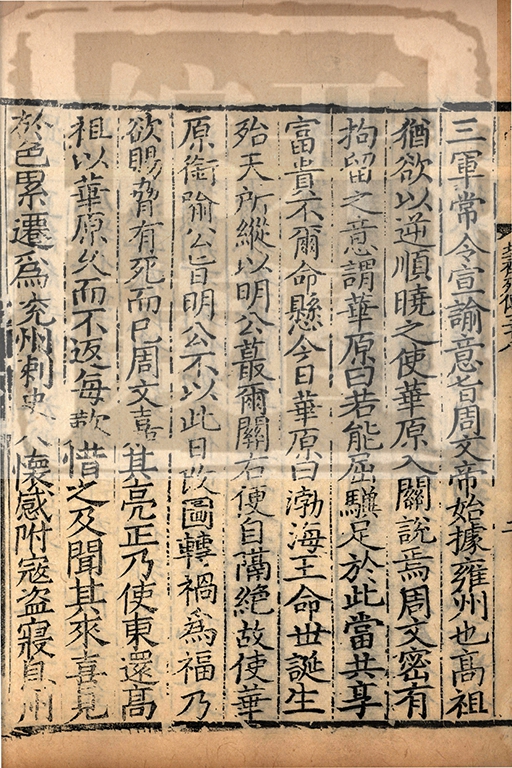 三軍常令宣諭意旨周文帝始據雍州也高祖
猶欲以逆順曉之使華原入關說焉周文密有
拘留之意謂華原曰若能屈驥足於此當共享
富貴不爾命懸今日華原曰渤海王命世誕生
殆天所縱以明公蕞爾關右便自隔絕故使華
原銜喻公旨明公不以此日改圖轉禍爲福乃
欲賜脅有死而已周文嘉其亮正乃使東還高
祖以華原久而不返每歎惜之及聞其來喜見
於色累遷爲兖州刺史人懷感附寇盜寢息州